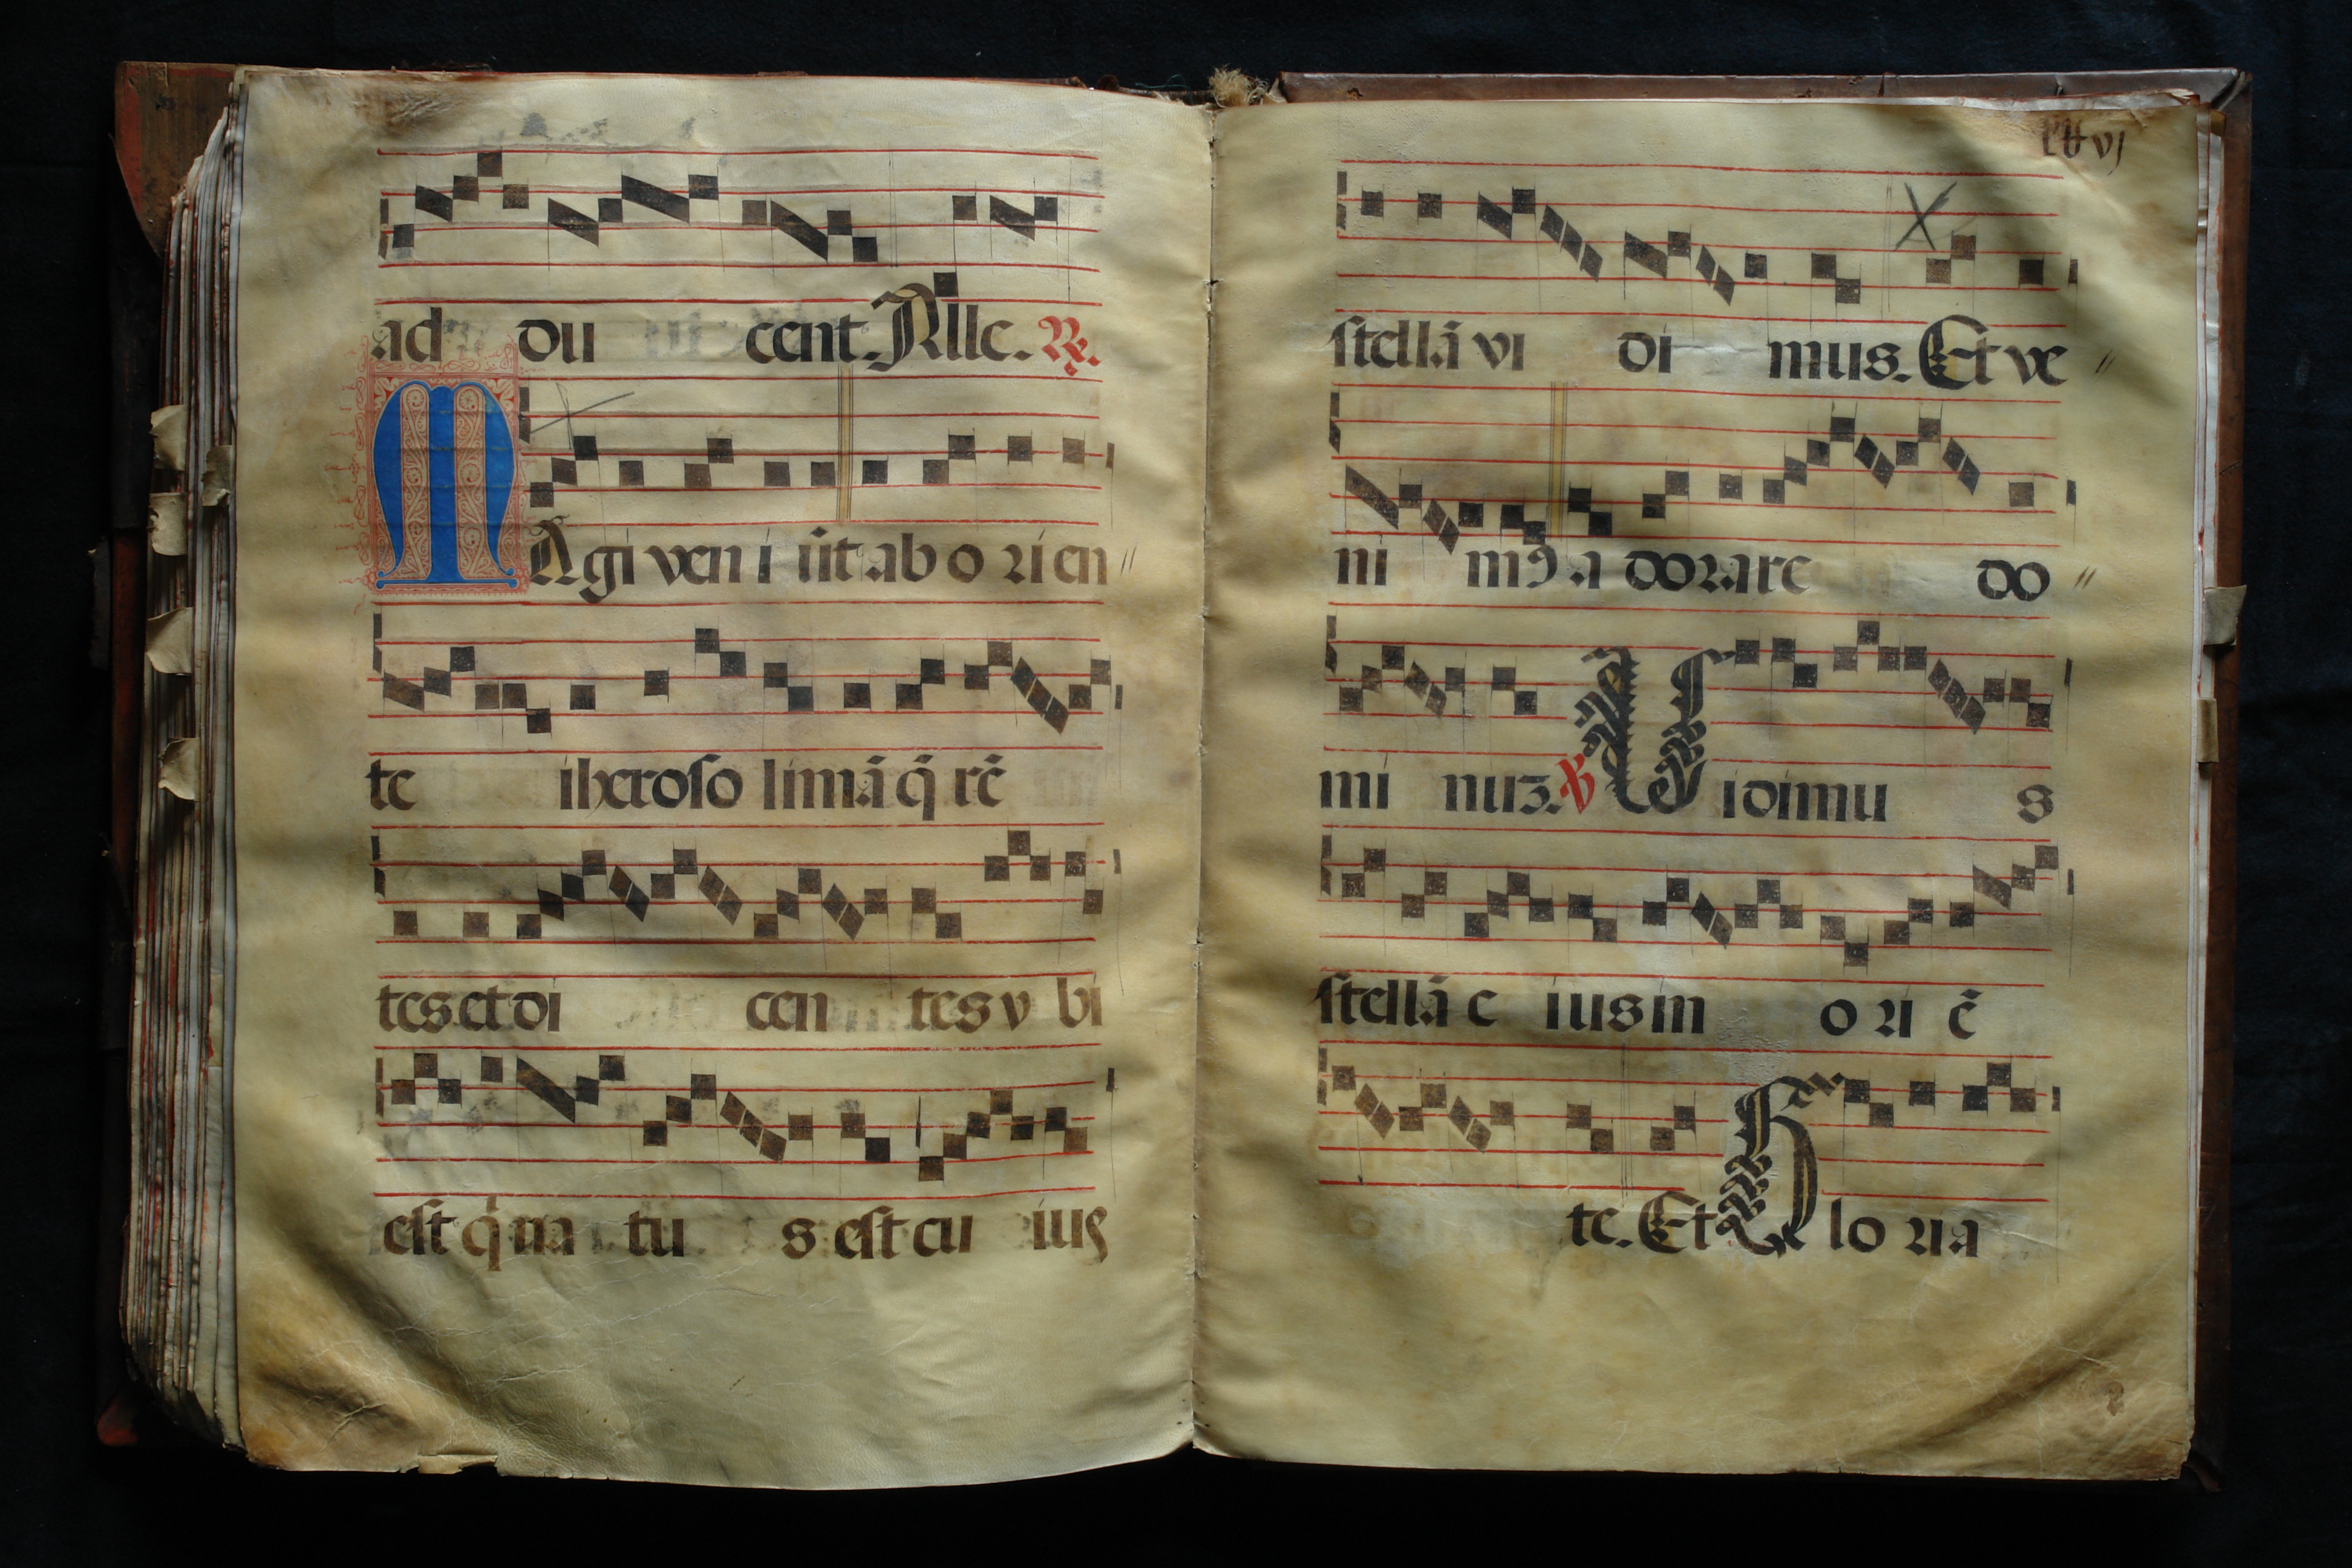 ad du cent. Alle. ℟.
MAgi ven i ūt ab o ri en //
te iheroso limā q̄ rē
tes et di cen tes v bi
est q̇ na tu s est cu ius
stellā vi di mus. Et ve //
ni mꝰ a dorare do //
mi nuz. ℣ Vidimu s
stellā e ius in o ri ē
te. Et Glo ria